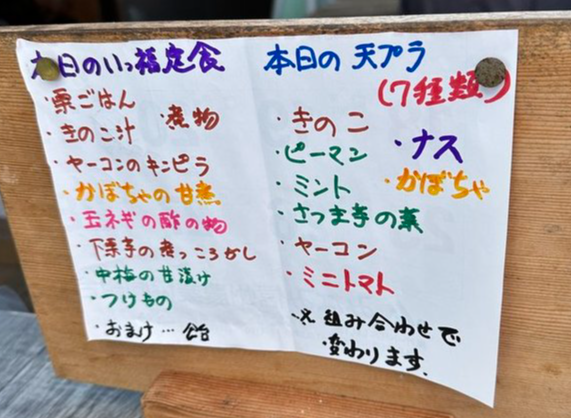 本日のいっ福定食
・栗ごはん
・煮物
・きのこ汁
・ヤーコンのキンピラ
・かぼちゃの甘煮
・玉ネギの酢の物
・下栗芋の煮っころがし
・中梅の甘漬け
・つけもの
・おまけ…飴
本日の天プラ
(7種類)
・きのこ
・ピーマン
・ナス
・ミント
・かぼちゃ
・さつま芋の葉
・ヤーコン
・ミニトマト
※組み合わせで
変わります.